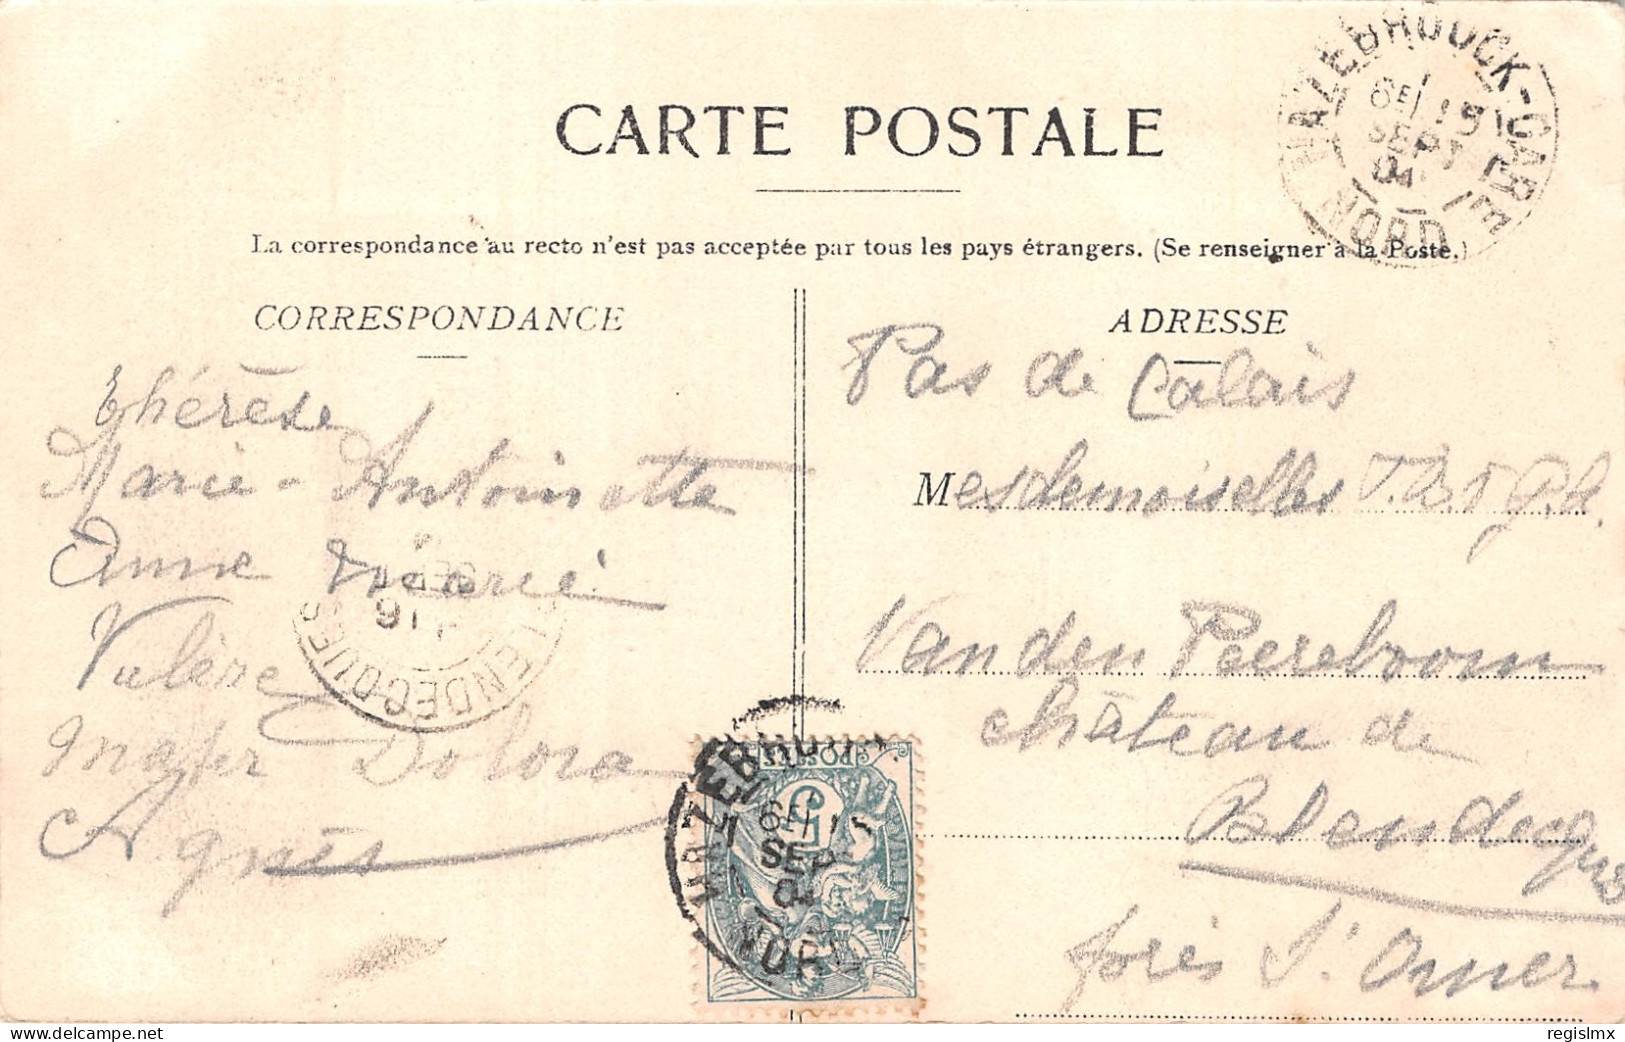 CARTE POSTALE
HAZEBROUCK-GARE
6E 15
SEPT
04
NORD
La correspondance au recto n'est pas acceptée par tous les pays étrangers. (Se renseigner à la Poste.)
CORRESPONDANCE
Thérèse
Marie-Antoinette
Anne Marie
Valère
Dolora
Agnès
BLENDECQUES
16
SEPT
ADRESSE
Pas de Calais
Mesdemoiselles
Van den Peereboom
château de
Blendecques
près St Omer
POSTES
5
HAZEBROUCK
6E 15
SEPT
04
NORD
regislmx